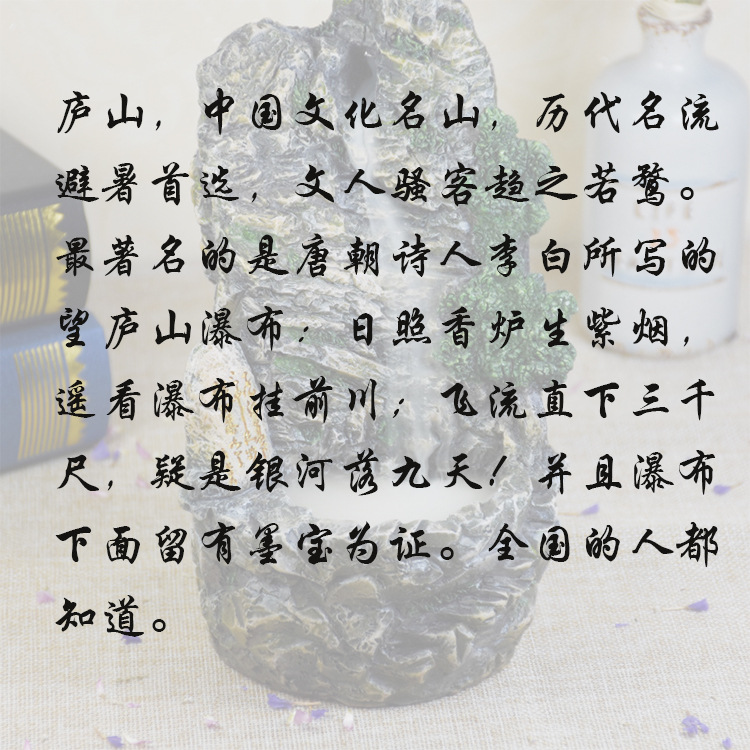 庐山，中国文化名山，历代名流
避暑首选，文人骚客趋之若鹜。
最著名的是唐朝诗人李白所写的
望庐山瀑布：日照香炉生紫烟，
遥看瀑布挂前川；飞流直下三千
尺，疑是银河落九天！并且瀑布
下面留有墨宝为证。全国的人都
知道。